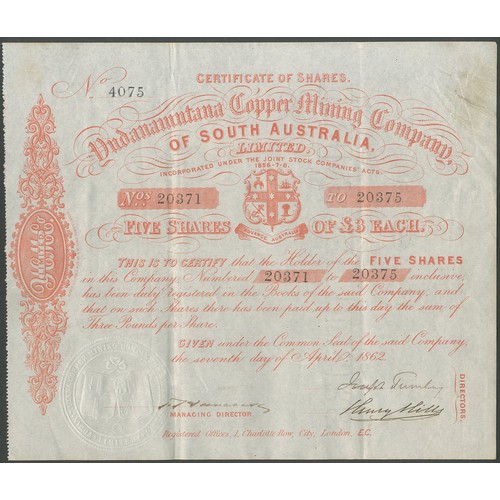 No. 4075
CERTIFICATE OF SHARES.
Yudanamutana Copper Mining Company,
OF SOUTH AUSTRALIA,
LIMITED.
INCORPORATED UNDER THE JOINT STOCK COMPANIES ACTS.
1856-7-8.
Nos 20371 TO 20375
ADVANCE AUSTRALIA
FIVE SHARES OF £3 EACH.
THIS IS TO CERTIFY that the Holder of the FIVE SHARES
in this Company, Numbered 20371 to 20375 inclusive,
has been duly registered in the Books of the said Company, and
that on such Shares there has been paid up to this day the sum of
Three Pounds per Share.
GIVEN under the Common Seal of the said Company,
the seventh day of April, 1862.
MANAGING DIRECTOR.
Henry Hills
DIRECTORS.
Registered Offices, 1, Charlotte Row, City, London, E.C.